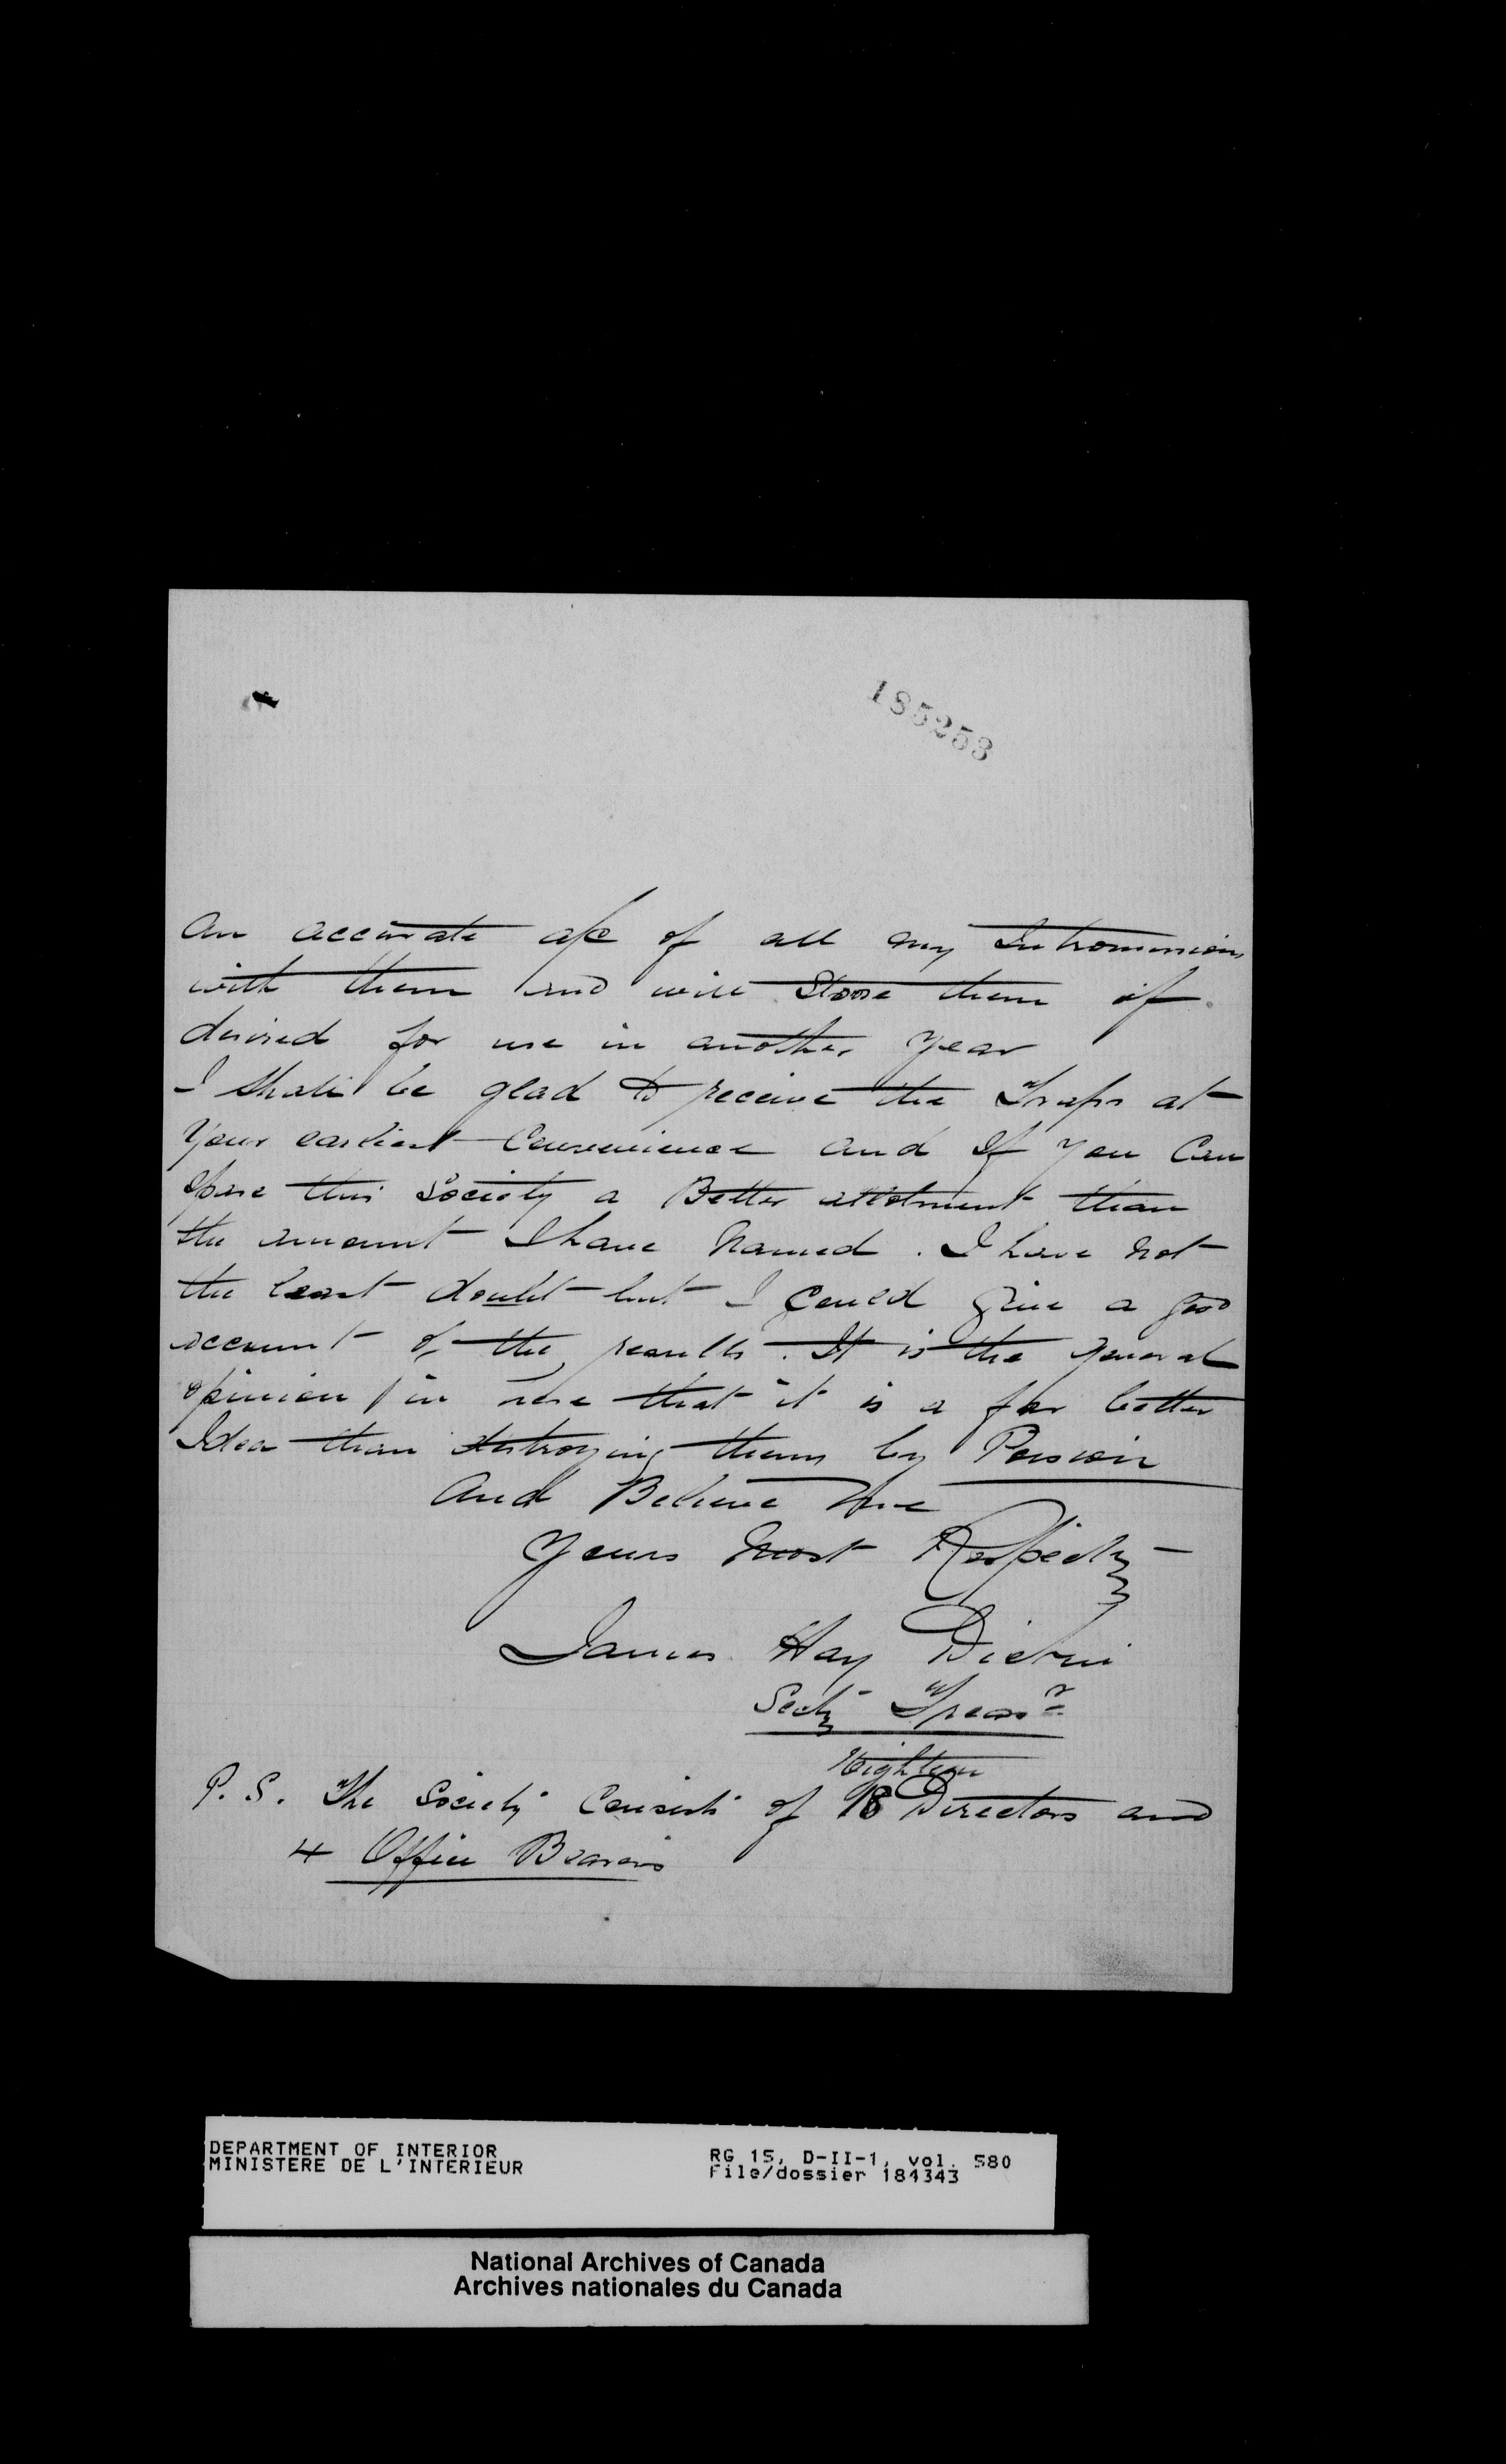 185253
An accurate a/c of all my Intromissions
with them and will Store them if
desired for use in another Year
I shall be glad to receive the Traps at
Your earliest Convenience and If you Can
spare this Society a Better allotment than
the amount I have Named . I have Not
the least doubt but I Could give a good
account of the results . It is the general
opinion in here that it is a far better
Idea than destroying them by Poison
And Believe Me
Yours Most Respectly
James Hay
Secty Treasr
Eighteen
P. S. The Society Consists of 18 Directors and
4 Office Bearers
DEPARTMENT OF INTERIOR
MINISTERE DE L'INTERIEUR
RG 15, D-II-1, vol. 580
File/dossier 184343
National Archives of Canada
Archives nationales du Canada